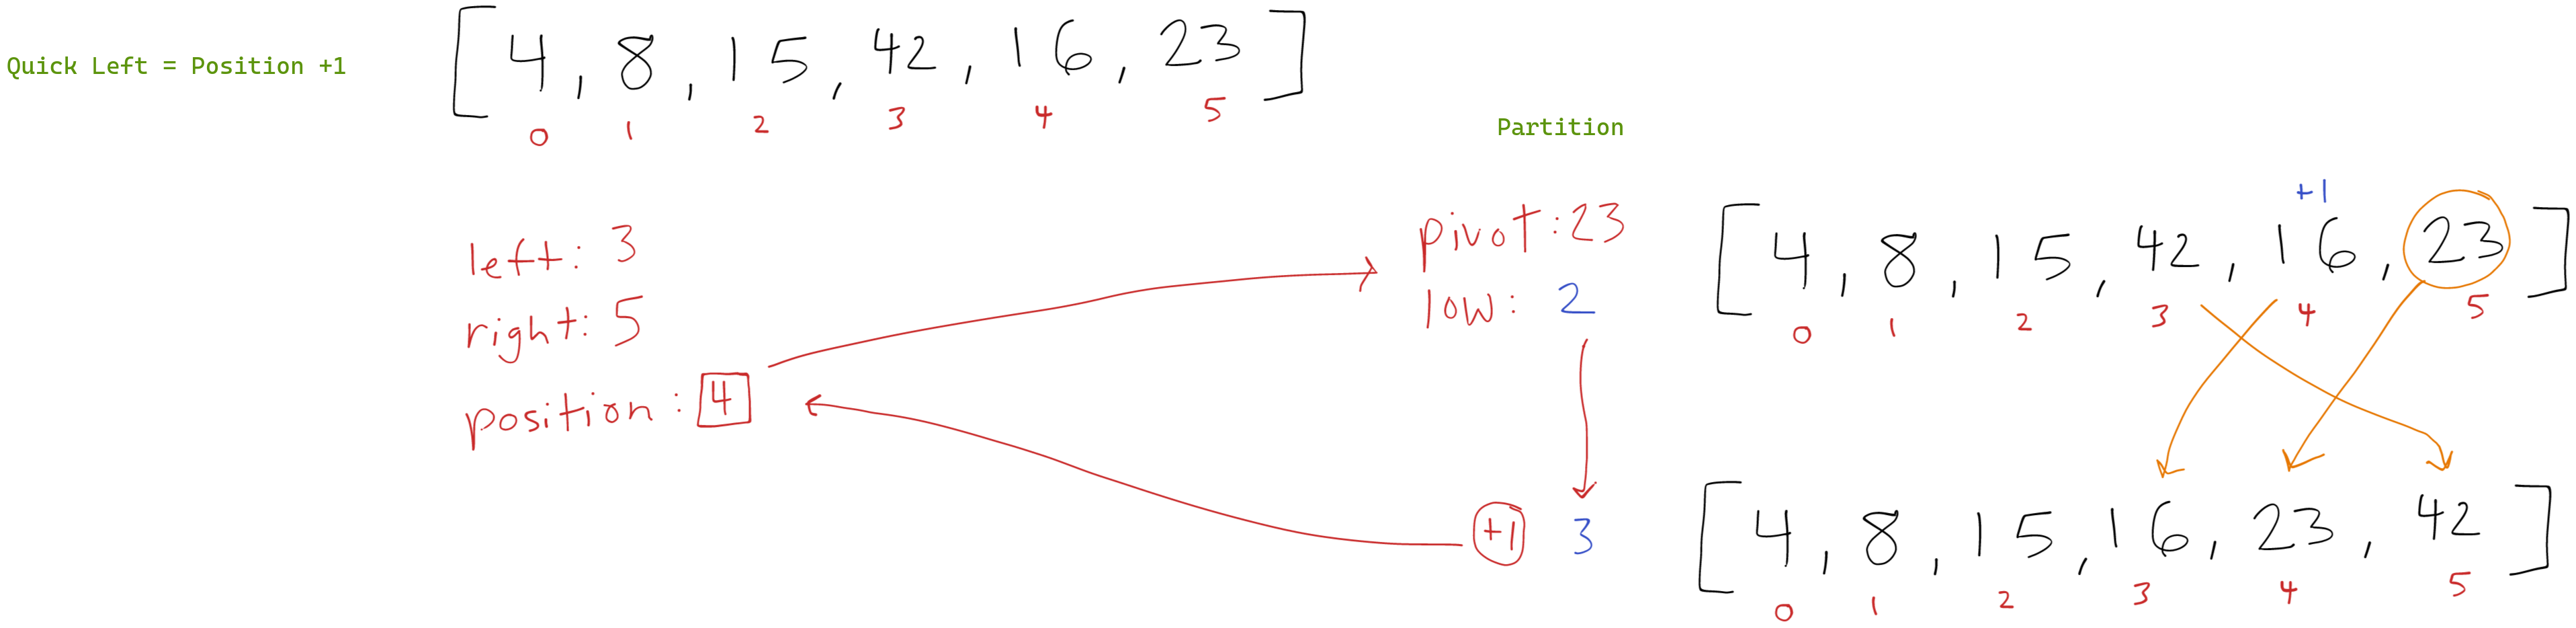 Quick Left = Position +1
[4, 8, 15, 42, 16, 23]
0 1 2 3 4 5
left: 3
right: 5
position: 4
Partition
pivot: 23
low: 2
+1 3
+1
[4, 8, 15, 42, 16, 23]
0 1 2 3 4 5
[4, 8, 15, 16, 23, 42]
0 1 2 3 4 5